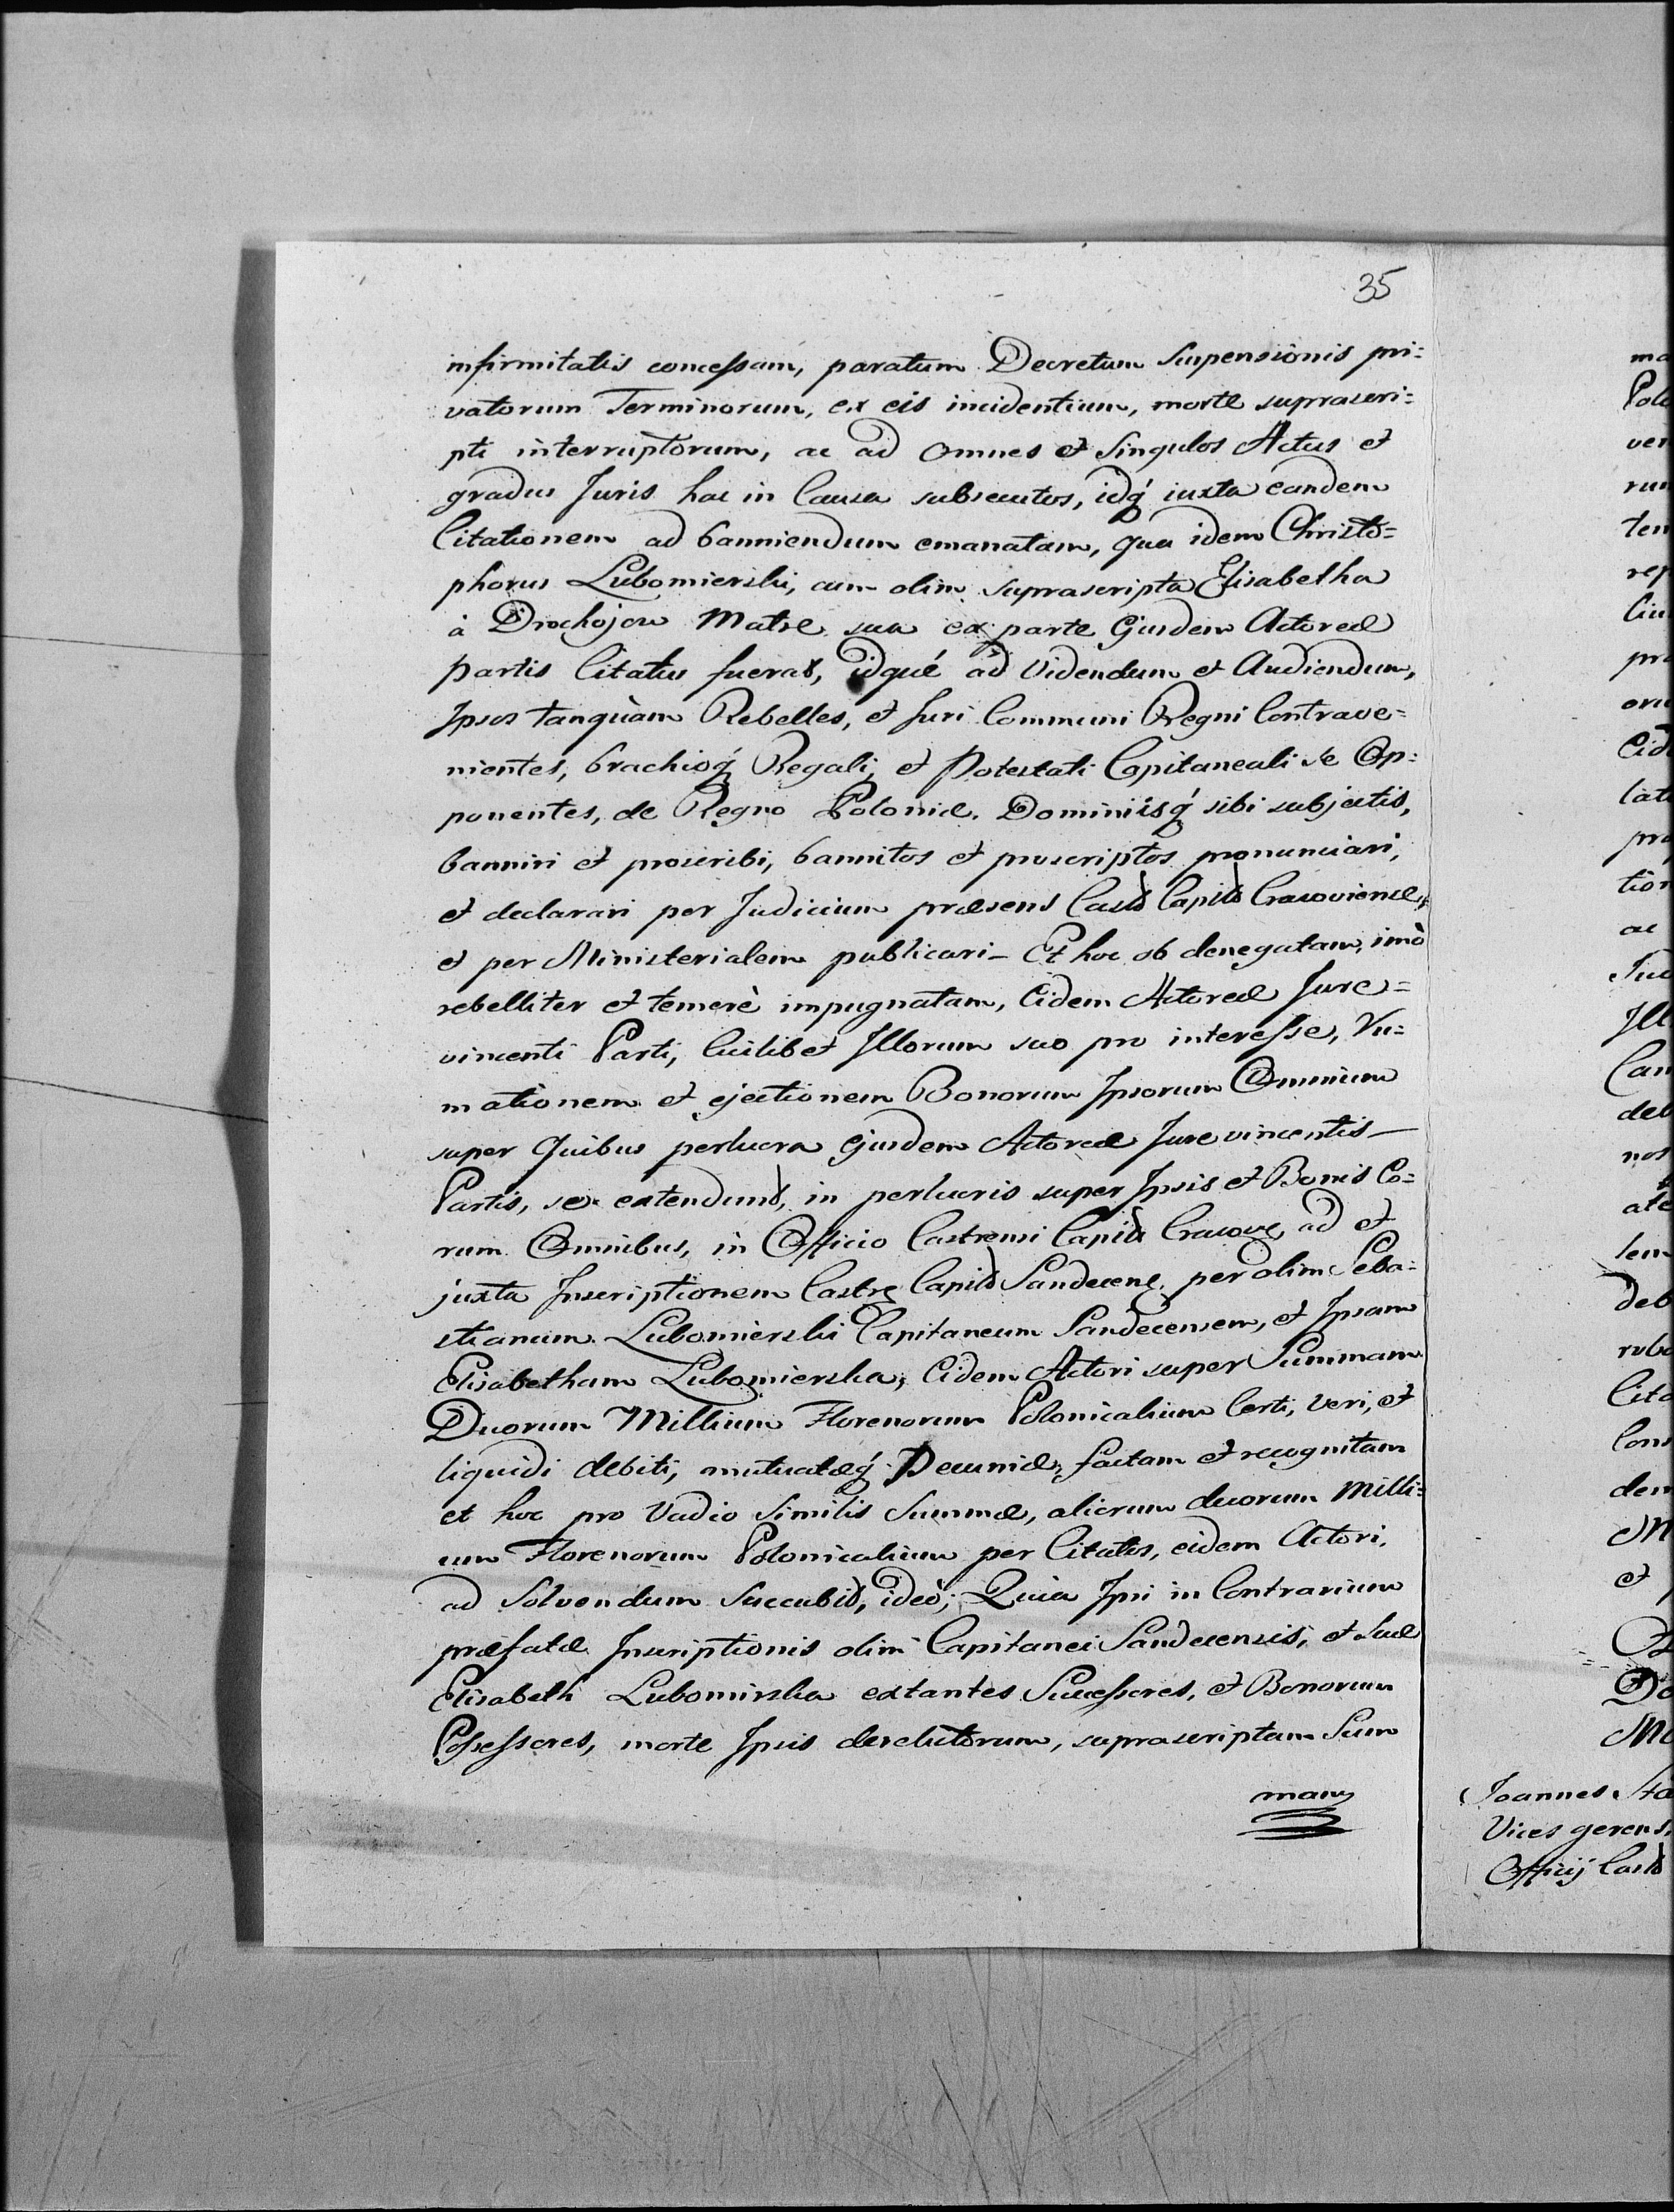 35
infirmitatis concessam, paratum Decretum Suspensionis pri=
vatorum Terminorum, ex eis incidentium, morte suprascri=
pti interruptorum, ac ad omnes et Singulos Actus et
gradus Juris hac in Causa subsecutos, idq́ iuxta eandem
Citationem ad banniendum emanatam, qua idem Christo=
phorus Lubomierski, cum olim suprascripta Elisabetha
à Drochojow Matre sua ex parte Ejusdem Actoreæ
partis Citatus fuerat, idqué ad Videndum et Audiendum,
Ipsos tanquàm Rebelles, et Juri Communi Regni Contrave=
nientes, brachioq́ Regali, et Potestati Capitaneali se Op=
ponentes, de Regno Poloniæ, Dominiisq́ sibi subjectis,
banniri et proscribi, bannitos et proscriptos pronunciari,
et declarari per Judicium præsens Castr Capitl Cracoviense,
et per Ministerialem publicari – Et hoc ob denegatam, imò
rebelliter et temerè impugnatam, Eidem Actoreæ Jure=
vincenti Parti, Cuilibet Illorum suo pro interesse, Ru=
mationem et ejectionem Bonorum Ipsorum Omnium
super Quibus perlucra Ejusdem Actoreæ Jure vincentis –
Partis, se extendunt, in perlucris super Ipsis et Bonis Eo=
rum Omnibus, in Officio Castrensi Capitl Cracov, ad et
juxta Inscriptionem Castr Capitl Sandecen, per olim Seba=
stianum Lubomierski Capitaneum Sandecensem, et Ipsam
Elisabetham Lubomierska, Eidem Actori super Summam
Duorum Millium Florenorum Polonicalium Certi, Veri, et
liquidi debiti, mutuatæq́ Pecuniæ, factam et recognitam
et hoc pro Vadio Similis Summæ, aliorum duorum Milli=
um Florenorum Polonicalium per Citatos, eidem Actori,
ad Solvendum Succubit, ideò; Quia Ipsi in Contrarium
præfatæ Inscriptionis olim Capitanei Sandecensis, et Suæ
Elisabeth Lubomirska extantes Successores, et Bonorum
Possessores, morte Ipsis derelictorum, suprascriptam Sum
mam
ma
Polo
ver
run
ten
rep
Civ
pro
oru
Eid
lat
pro
tion
ac
Jud
Ill
Cap
deb
nos
ate
sen
Deb
rubo
Cita
Cons
den
M
et
Do
Mo
Joannes Sta
Vices gerens
Officij Castr